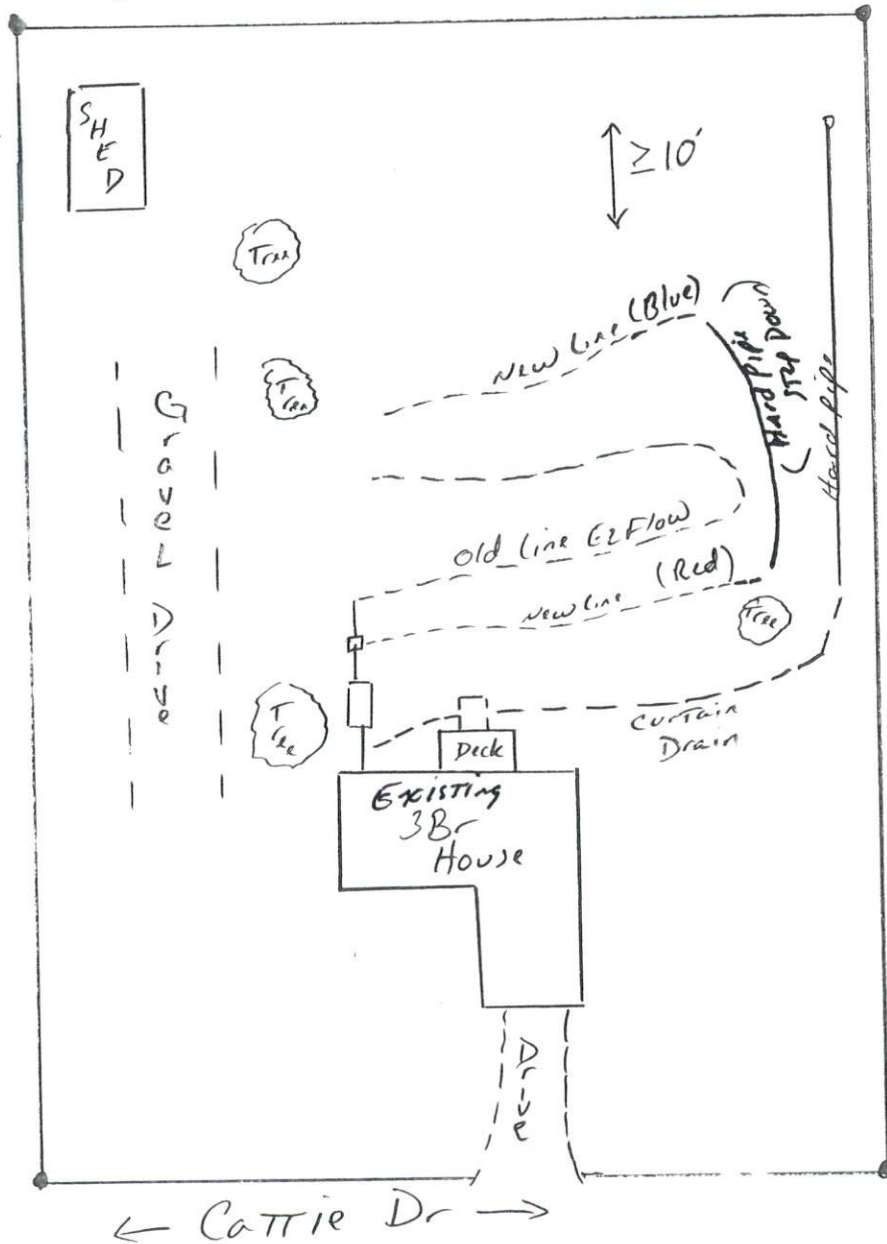 SHED
≥10'
Tree
New Line (Blue)
(Hard Pipe
Step Down)
Hard Pipe
Tree
Gravel Drive
Old Line EZ Flow
New Line (Red)
Tree
Tree
Curtain
Drain
Deck
Existing
3Br
House
Drive
← Cattie Dr →